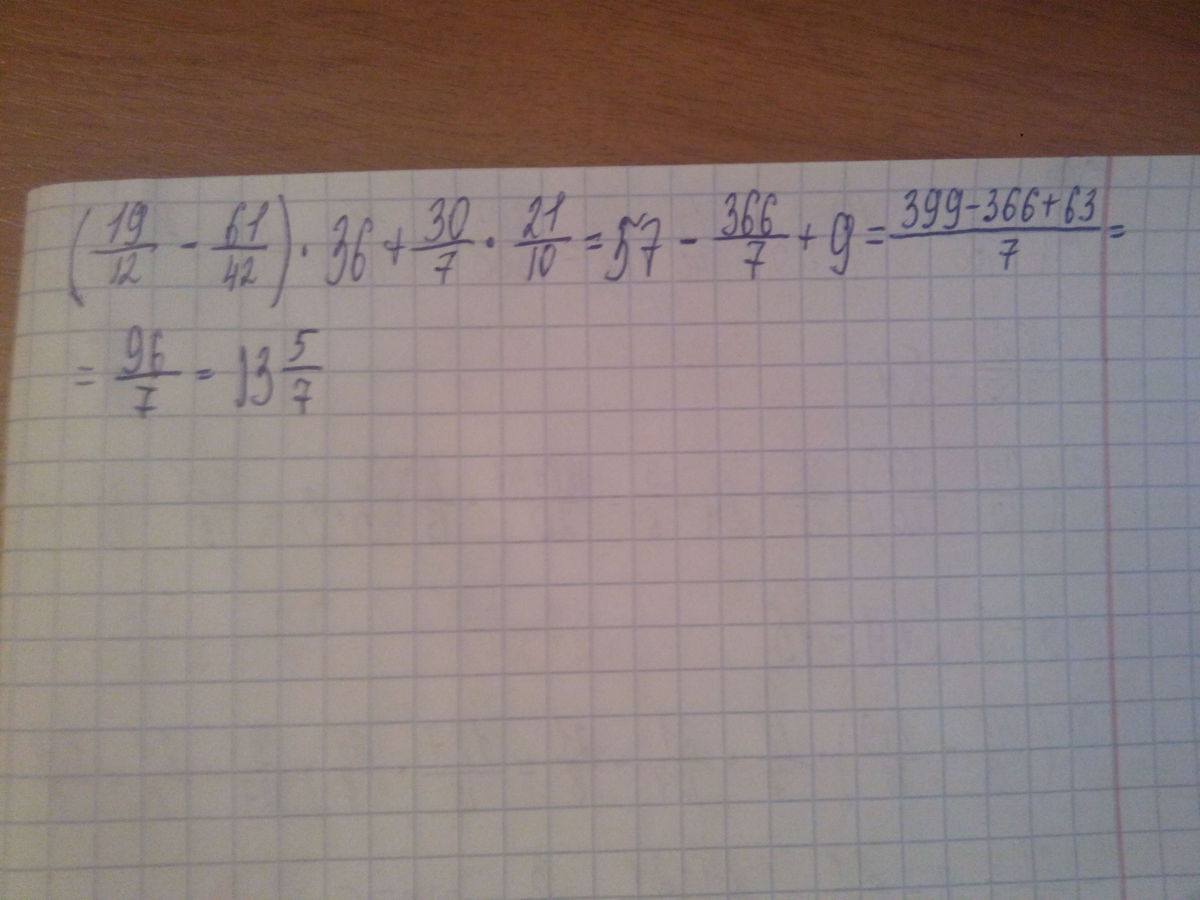 (19/12 - 61/42) · 36 + 30/7 · 21/10 = 57 - 366/7 + 9 = 399-366+63/7 =
= 96/7 = 13 5/7